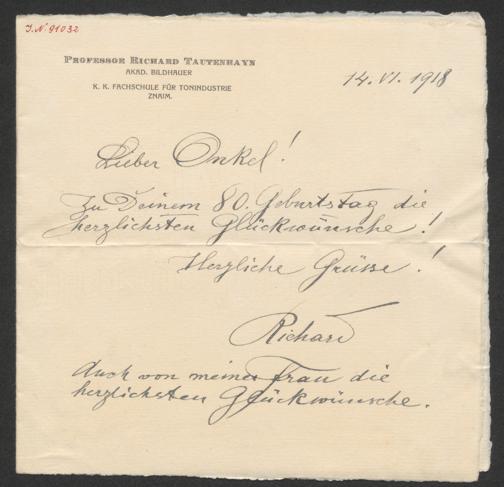 J.N. 91032
PROFESSOR RICHARD TAUTENHAYN
AKAD. BILDHAUER
K. K. FACHSCHULE FÜR TONINDUSTRIE
ZNAIM.
14. VI. 1918
Lieber Onkel!
Zu Deinem 80. Geburtstag die
herzlichsten Glückwünsche!
Herzliche Grüsse!
Richard
Auch von meiner Frau die
herzlichsten Glückwünsche.